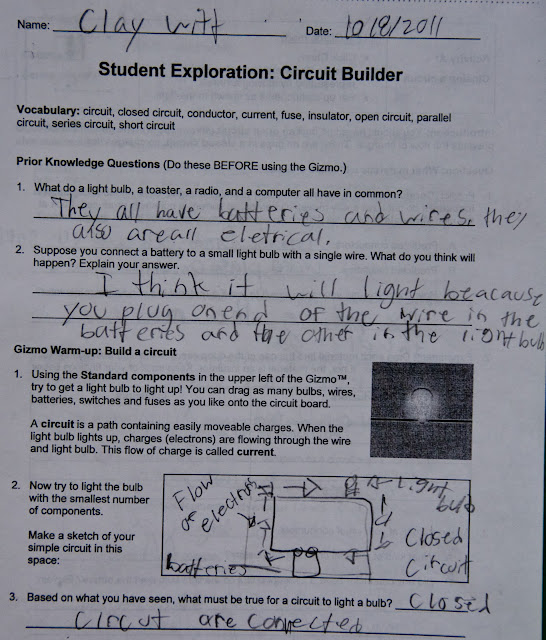 Name: Clay Witt Date: 10/8/2011
Student Exploration: Circuit Builder
Vocabulary: circuit, closed circuit, conductor, current, fuse, insulator, open circuit, parallel
circuit, series circuit, short circuit
Prior Knowledge Questions (Do these BEFORE using the Gizmo.)
1. What do a light bulb, a toaster, a radio, and a computer all have in common?
They all have batteries and wires, they
also are all eletrical.
2. Suppose you connect a battery to a small light bulb with a single wire. What do you think will
happen? Explain your answer.
I think it will light beacause
you plug on end of the wire in the
batteries and the other in the light bulb
Gizmo Warm-up: Build a circuit
1. Using the Standard components in the upper left of the Gizmo™,
try to get a light bulb to light up! You can drag as many bulbs, wires,
batteries, switches and fuses as you like onto the circuit board.
A circuit is a path containing easily moveable charges. When the
light bulb lights up, charges (electrons) are flowing through the wire
and light bulb. This flow of charge is called current.
2. Now try to light the bulb
with the smallest number
of components.
Make a sketch of your
simple circuit in this
space:
Flow
of electrons
light
bulb
Closed
Circuit
batteries
3. Based on what you have seen, what must be true for a circuit to light a bulb? Closed
circut are conected